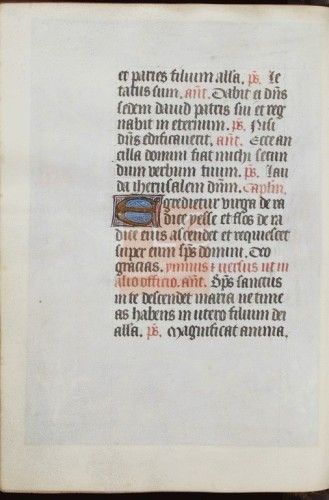 et paries filium alla. ps. Le
tatus sum. ant. Dabit ei dns
sedem david patris sui et reg
nabit in eternum. ps. Nisi
dns edificaverit. ant. Ecce an
cilla domini fiat michi secun
dum verbum tuum. ps. Lau
da iherusalem dnm. Caplm.
Egredietur virga de ra
dice yesse et flos de ra
dice eius ascendet et requiescet
super eum sps domini. Deo
gracias. ymnus et versus ut in
alio officio. ant. Sps sanctus
in te descendet maria ne time
as habens in utero filium dei
alla. ps. Magnificat anima.